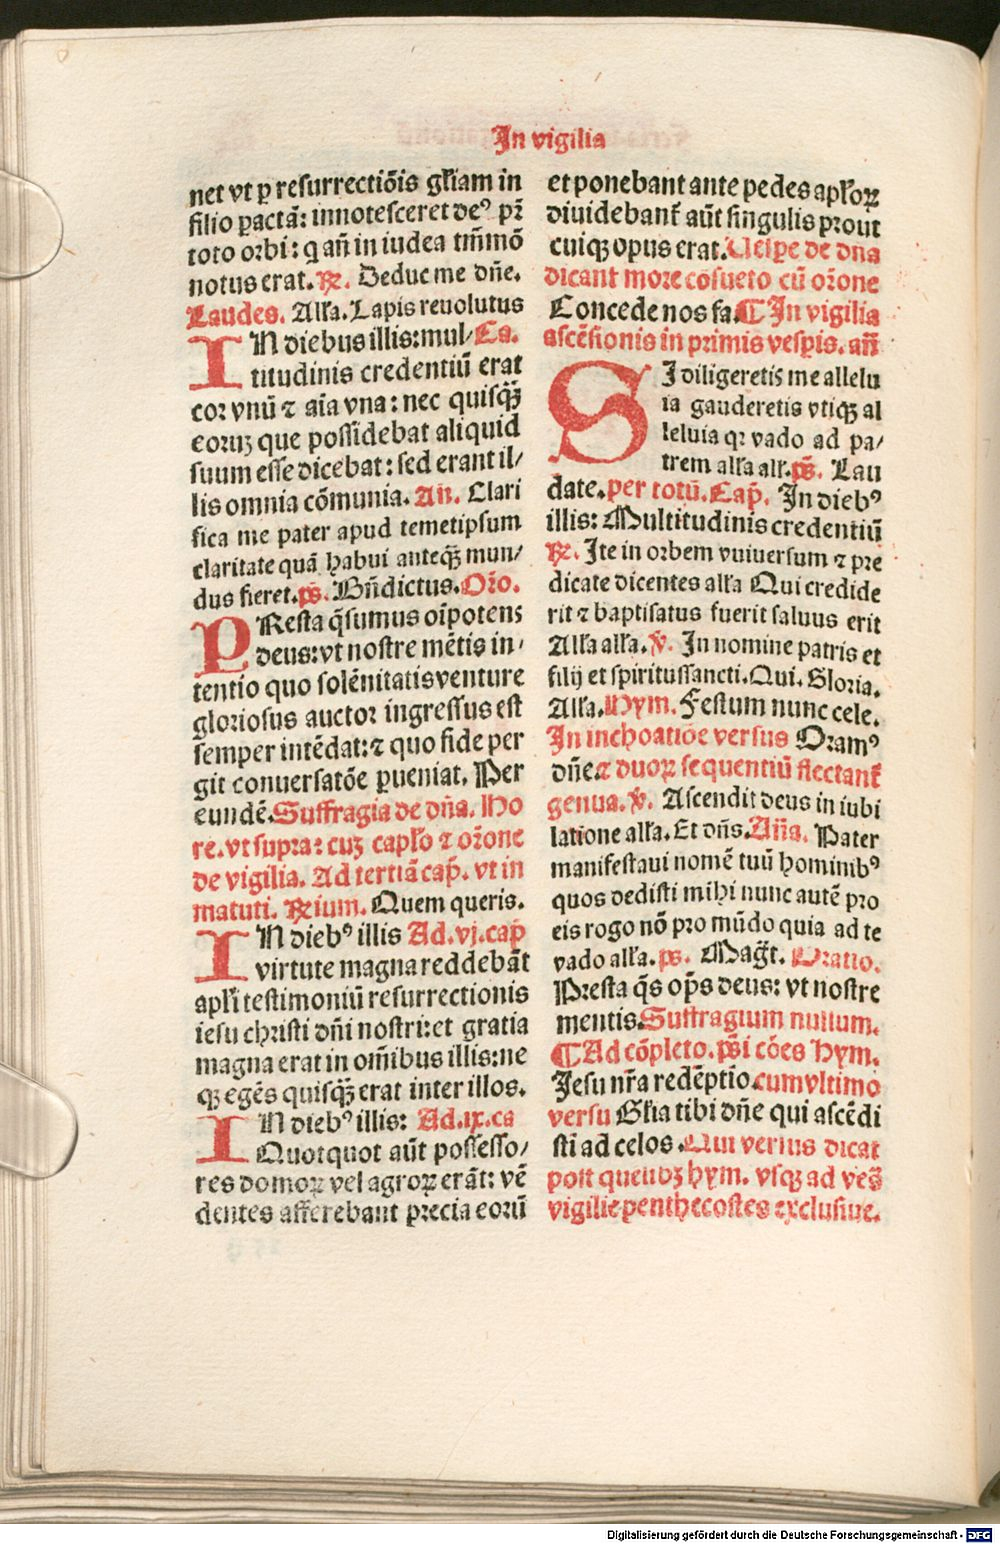 In vigilia
net vt ꝑ resurrectiõis gl̃iam in
filio ꝑactã: innotesceret deꝰ pr̃
toto orbi: q añ in iudea tm̃mõ
notus erat. ℞. Deduc me dñe.
Laudes. Al̃l̃a. Lapis reuolutus
IN diebus illis: mul/ Ca.
titudinis credentiũ erat
cor vnũ ⁊ aĩa vna: nec quisq̃ꝫ
eoruꝫ que possidebat aliquid
suum esse dicebat: sed erant il/
lis omnia cõmunia. Añ. Clari
fica me pater apud temetipsum
claritate quã habui anteq̃ꝫ mun/
dus fieret. ps̃. Bñdictus. Orõ.
PResta q̃sumus oĩpotens
deus: vt nostre mẽtis in/
tentio quo solẽnitatis venture
gloriosus auctor ingressus est
semper intẽdat: ⁊ quo fide per
git conuersatõe ꝑueniat. Per
eundẽ. Suffragia de dña. Ho
re. vt supra: cuꝫ capl̃o ⁊ orõne
de vigilia. Ad tertiã cap̃. vt in
matuti. ℞ium. Quem queris.
IN diebꝰ illis Ad. vj. cap̃
virtute magna reddebãt
apl̃i testimoniũ resurrectionis
iesu christi dñi nostri: et gratia
magna erat in om̃ibus illis: ne
qꝫ egẽs quisq̃ꝫ erat inter illos.
IN diebꝰ illis: Ad. ix. ca
Quotquot aũt possesso/
res domoꝝ vel agroꝝ erãt: vẽ
dentes afferebant precia eorũ
et ponebant ante pedes apl̃oꝝ
diuidebant̃ aũt singulis prout
cuiqꝫ opus erat. Uespe de dña
dicant more cõsueto cũ orõne
Concede nos fa. ¶ In vigilia
ascẽsionis in primis vesꝑis. añ
SI diligeretis me allelu
ia gauderetis vtiqꝫ al
leluia qꝛ vado ad pa/
trem al̃l̃a all̃. ps̃. Lau
date. per totũ. Cap̃. In diebꝰ
illis: Multitudinis credentiũ
℞. Ite in orbem vniuersum ⁊ pre
dicate dicentes al̃l̃a Qui credide
rit ⁊ baptisatus fuerit saluus erit
Al̃l̃a al̃l̃a. ℣. In nomine patris et
filij et spiritussancti. Qui. Gloria.
Al̃l̃a. Hym. Festum nunc cele.
In inchoatiõe versus Oramꝰ
dñe. ⁊ duoꝝ sequentiũ flectant̃
genua. ℣. Ascendit deus in iubi
latione al̃l̃a. Et dñs. Añã. Pater
manifestaui nomẽ tuũ hominibꝰ
quos dedisti mihi nunc autẽ pro
eis rogo nõ pro mũdo quia ad te
vado al̃l̃a. ps. Mag̃t. Oratio.
Presta q̃s op̃s deus: vt nostre
mentis. Suffragium nullum.
¶ Ad cõpleto. ps̃i cões hym.
Jesu nr̃a redẽptio. cum vltimo
versu Gl̃ia tibi dñe qui ascẽdi
sti ad celos. Qui versus dicat̃
post quẽlibꝫ hym. vsqꝫ ad ves̃
vigilie penthecostes exclusiue.
Digitalisierung gefördert durch die Deutsche Forschungsgemeinschaft - DFG